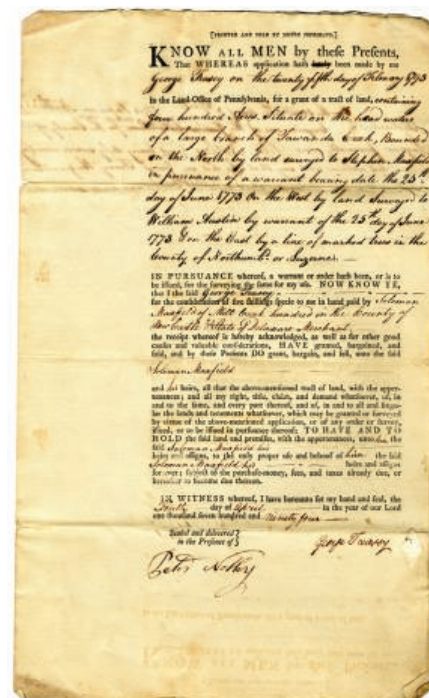 [PRINTED AND SOLD BY
KNOW ALL MEN by these Presents,
That WHEREAS application hath been made by me
George on the twenty fifth day of February 1793
in the Land-Office of Pennsylvania, for a grant of a tract of land, containing
four hundred Acres. Situate on the head waters
of a large branch of Tawanda Creek, Bounded
on the North by land surveyed to Stephen Maxfield
in pursuance of a warrant bearing date the 25th
day of June 1773 On the West by land Surveyed to
William Austin by warrant of the 25th day of June
1773 & on the East by a line of marked trees in the
County of Northumbd. or Luzerne.
IN PURSUANCE whereof, a warrant or order hath been, or is to
be issued, for the surveying the same for my use. NOW KNOW YE,
that I the said George
for the consideration of five shillings specie to me in hand paid by Soloman
Maxfield of Mill Creek hundred in the County of
New Castle & State of Delaware Merchant
the receipt whereof is hereby acknowledged, as well as for other good
causes and valuable considerations, HAVE granted, bargained, and
sold, and by these Presents DO grant, bargain, and sell, unto the said
Soloman Maxfield
and his heirs, all that the abovementioned tract of land, with the appur-
tenances; and all my right, title, claim, and demand whatsoever, of, in
and to the same, and every part thereof, and of, in and to all and singu-
lar the lands and tenements whatsoever, which may be granted or surveyed
by virtue of the above-mentioned application, or of any order or survey,
issued, or to be issued in pursuance thereof: TO HAVE AND TO
HOLD the said land and premises, with the appurtenances, unto the said
Soloman Maxfield his
heirs and assigns, to the only proper use and behoof of him the said
Soloman Maxfield his heirs and assigns
for ever; subject to the purchase-money, fees, and taxes already due, or
hereafter to become due thereon.
IN WITNESS whereof, I have hereunto set my hand and seal, the
day of April in the year of our Lord
one thousand seven hundred and ninety four
Sealed and delivered
in the Presence of
George
Peter